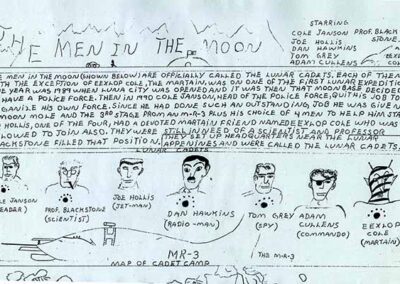 THE MEN IN THE MOON
STARRING
COLE JANSON PROF. BLACK
JOE HOLLIS STONE
DAN HAWKINS
TOM GREY EEXLOP
ADAM CULLENS COLE
E MEN IN THE MOON (SHOWN BELOW) ARE OFFICIALLY CALLED THE LUNAR CADETS. EACH OF THEM
WITH THE EXCEPTION OF EEXLOP COLE, THE MARTAIN, WAS ON ONE OF THE FIRST LUNAR EXPEDITI
E YEAR WAS 1989 WHEN LUNA CITY WAS OPENED AND IT WAS THEN THAT MOON BASE DECIDED
HAVE A POLICE FORCE. THEN IN 1990 COLE JANSON, HEAD OF THE POLICE FORCE, QUIT HIS JOB TO
GANIZE HIS OWN FORCE. SINCE HE HAD DONE SUCH AN OUTSTANDING JOB HE WAS GIVEN
MOON MOLE AND THE 3RD STAGE FROM AN M-R-3 PLUS HIS CHOICE OF 4 MEN TO HELP HIM STA
HOLLIS, ONE OF THE FOUR, HAD A DEVOTED MARTAIN FRIEND NAMED EEXLOP COLE WHO WAS
LOWED TO JOIN ALSO. THEY WERE STILL IN NEED OF A SCIENTIST AND PROFESSOR
ACKSTONE FILLED THAT POSITION. THEY SET UP HEADQUARTERS NEAR THE LUNAR
APPENINES AND WERE CALLED THE LUNAR CADETS.
LUNAR CADETS
LE JANSON
EADER)
PROF. BLACKSTONE
(SCIENTIST)
JOE HOLLIS
(JET-MAN)
DAN HAWKINS
(RADIO-MAN)
TOM GREY
(SPY)
ADAM
CULLENS
(COMMANDO)
EEXLOP
COLE
(MARTAIN)
MR-3
MAP OF CADET CAMP
THE M-R-3